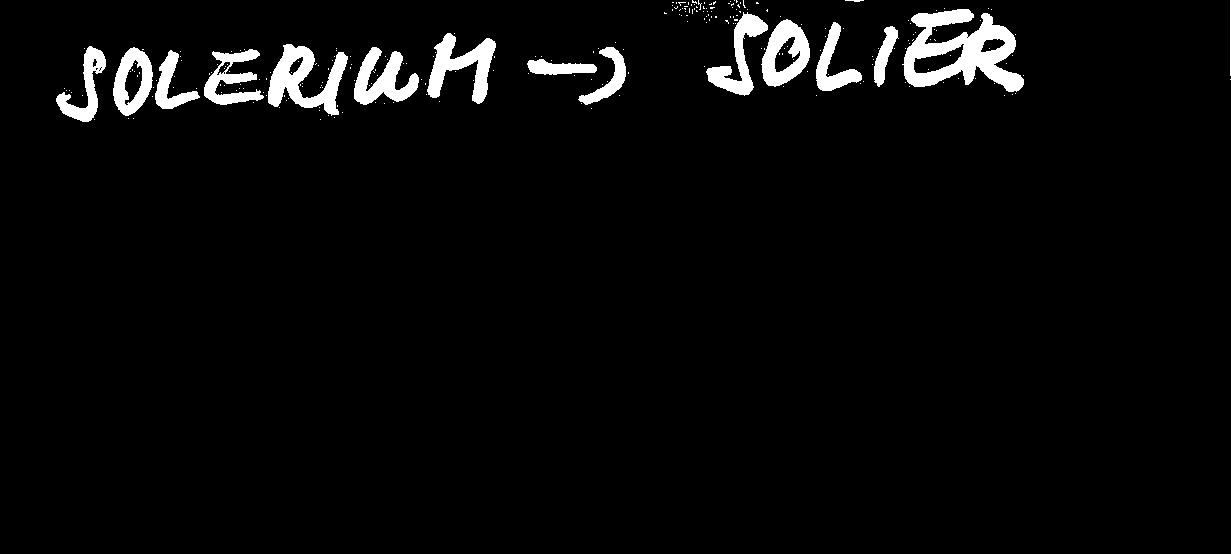 SOLERIUM → SOLIER